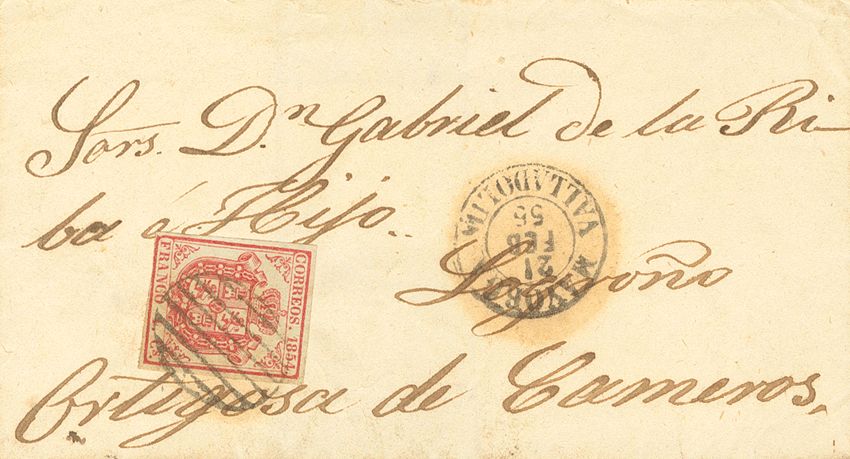 Sors. Dn. Gabriel de la Ri-
ba é Hijo.
Logroño
Ortigosa de Cameros.
CORREOS. 1854.
FRANCO
VALLADOLID
21
FEB
55